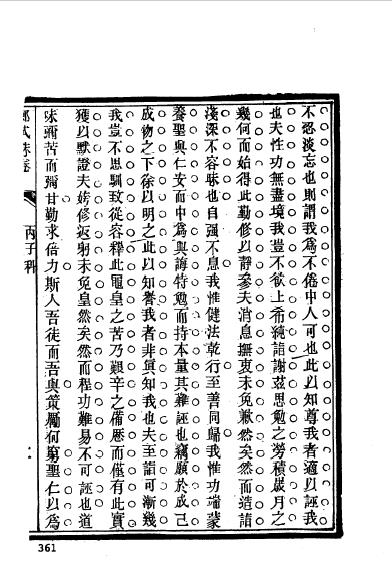 不忍淡忘也則謂我爲不倦中人可也此以知尊我者適以誣我
也夫性功無盡境我豈不欲上希純詣謝茲思勉之勞積歲月之
幾何而始得此勤修以靜參夫消息撫衷未免歉然矣然而造詣
淺深不容昧也自强不息我惟健法乾行至善同歸我惟功端蒙
養聖與仁安而中爲與誨特勉而持本量其難誣也竊願於成己
成物之下徐以明之此以知譽我者非眞知我也夫至詣可漸幾
我豈不思馴致從容釋此黽皇之苦乃艱辛之備歷而僅有此實
獲以默證夫姱修返躬未免皇然矣然而程功難易不可誣也道
味彌苦而彌甘勤求倍力斯人吾徒而吾與策厲何窮聖仁以爲
丙子科
361